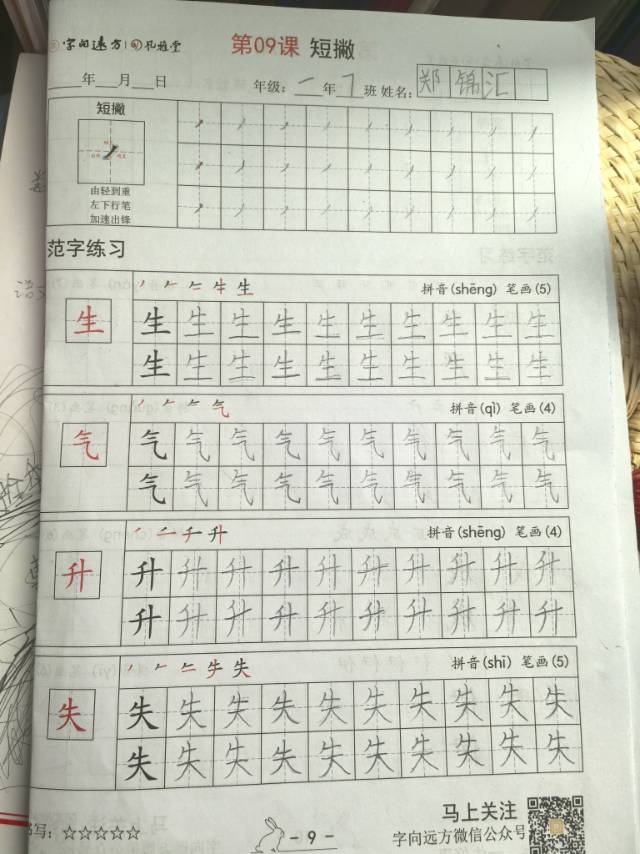 字向远方 孔雅堂
第09课 短撇
年 月 日 年级：一年7班 姓名：郑锦汇
短撇
由轻到重
左下行笔
加速出锋
范字练习
生 拼音(shēng) 笔画(5)
生 生 生 生 生 生 生 生 生 生 生
生 生 生 生 生 生 生 生 生 生
气 拼音(qì) 笔画(4)
气 气 气 气 气 气 气 气 气 气 气
气 气 气 气 气 气 气 气 气 气
升 拼音(shēng) 笔画(4)
升 升 升 升 升 升 升 升 升 升 升
升 升 升 升 升 升 升 升 升 升
失 拼音(shī) 笔画(5)
失 失 失 失 失 失 失 失 失 失 失
失 失 失 失 失 失 失 失 失 失
写：☆☆☆☆☆
- 9 -
马上关注
字向远方微信公众号